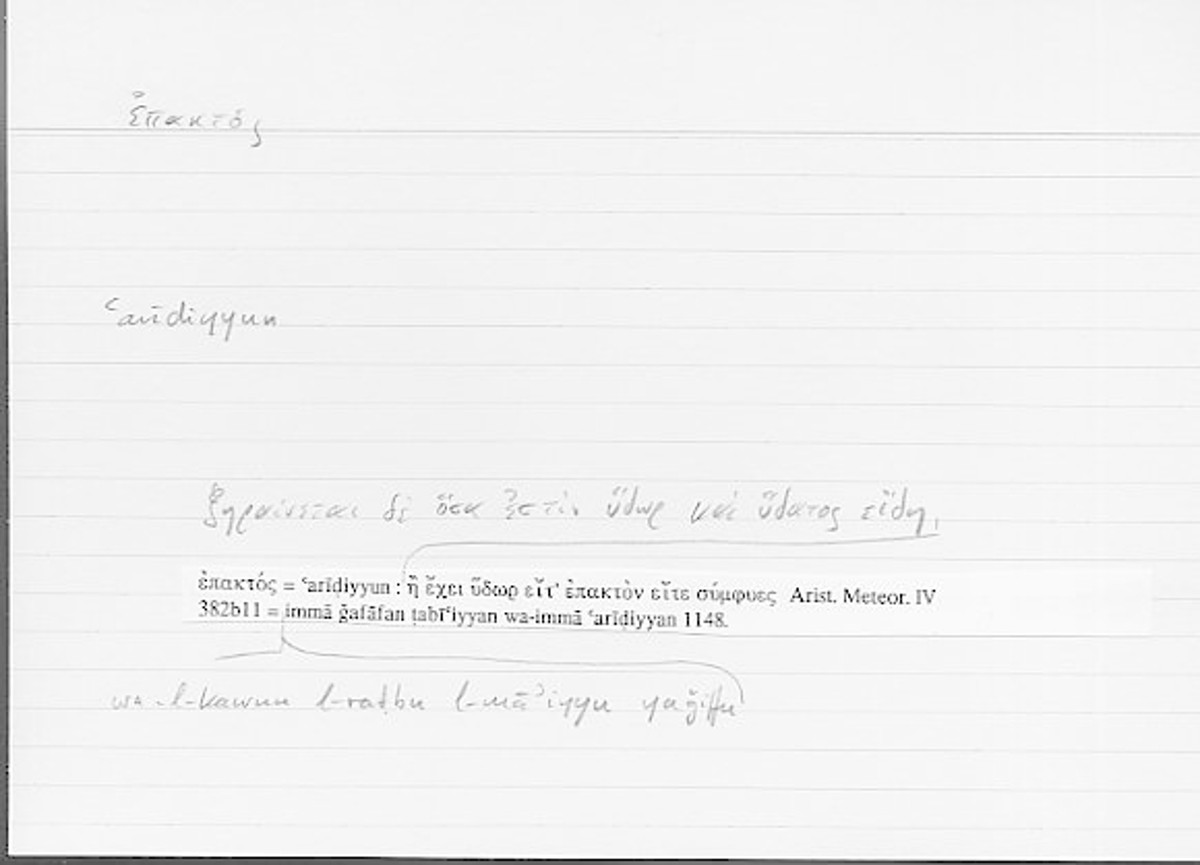 ἐπακτός
ʿarīḍiyyun
ξηραίνεται δὲ ὅσα ἐστὶν ὕδωρ καὶ ὕδατος εἴδη,
ἐπακτός = ʿarīḍiyyun : ἢ ἔχει ὕδωρ εἴτ' ἐπακτὸν εἴτε σύμφυες Arist. Meteor. IV
382b11 = immā ǧafāfan ṭabīʿiyyan wa-immā ʿarīḍiyyan 1148.
wa-l-kawnu l-raṭbu l-māʾiyyu yaǧiffu